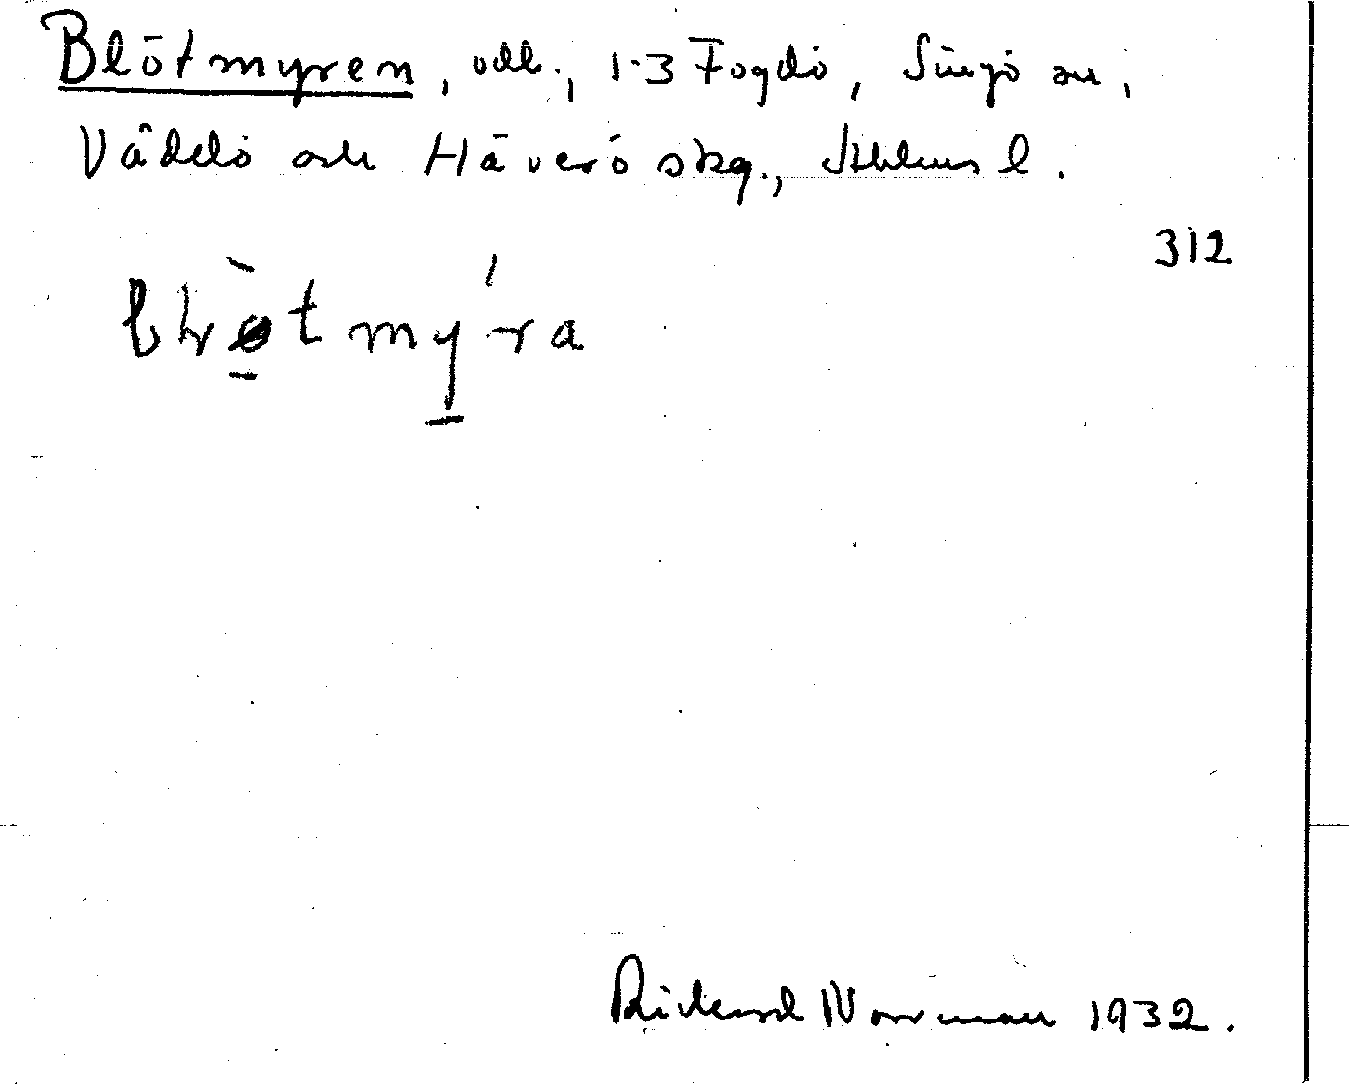 Blötmyren, odl., 1-3 Fogdö, Singö sn,
Väddö och Häverö skg., Sthlms l.
312
blø̀tmýra
Rickard Norrman 1932.